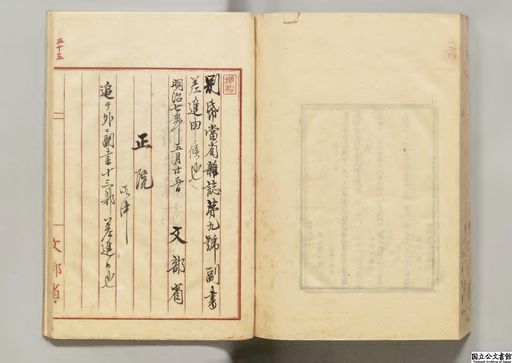 別帋當省雜誌第九號副書
差進申候也
明治七年五月廿五日
文部省
正院
御中
追テ外ニ副書十三部差進候也
文部省
三十五
国立公文書館
National Archives of Japan